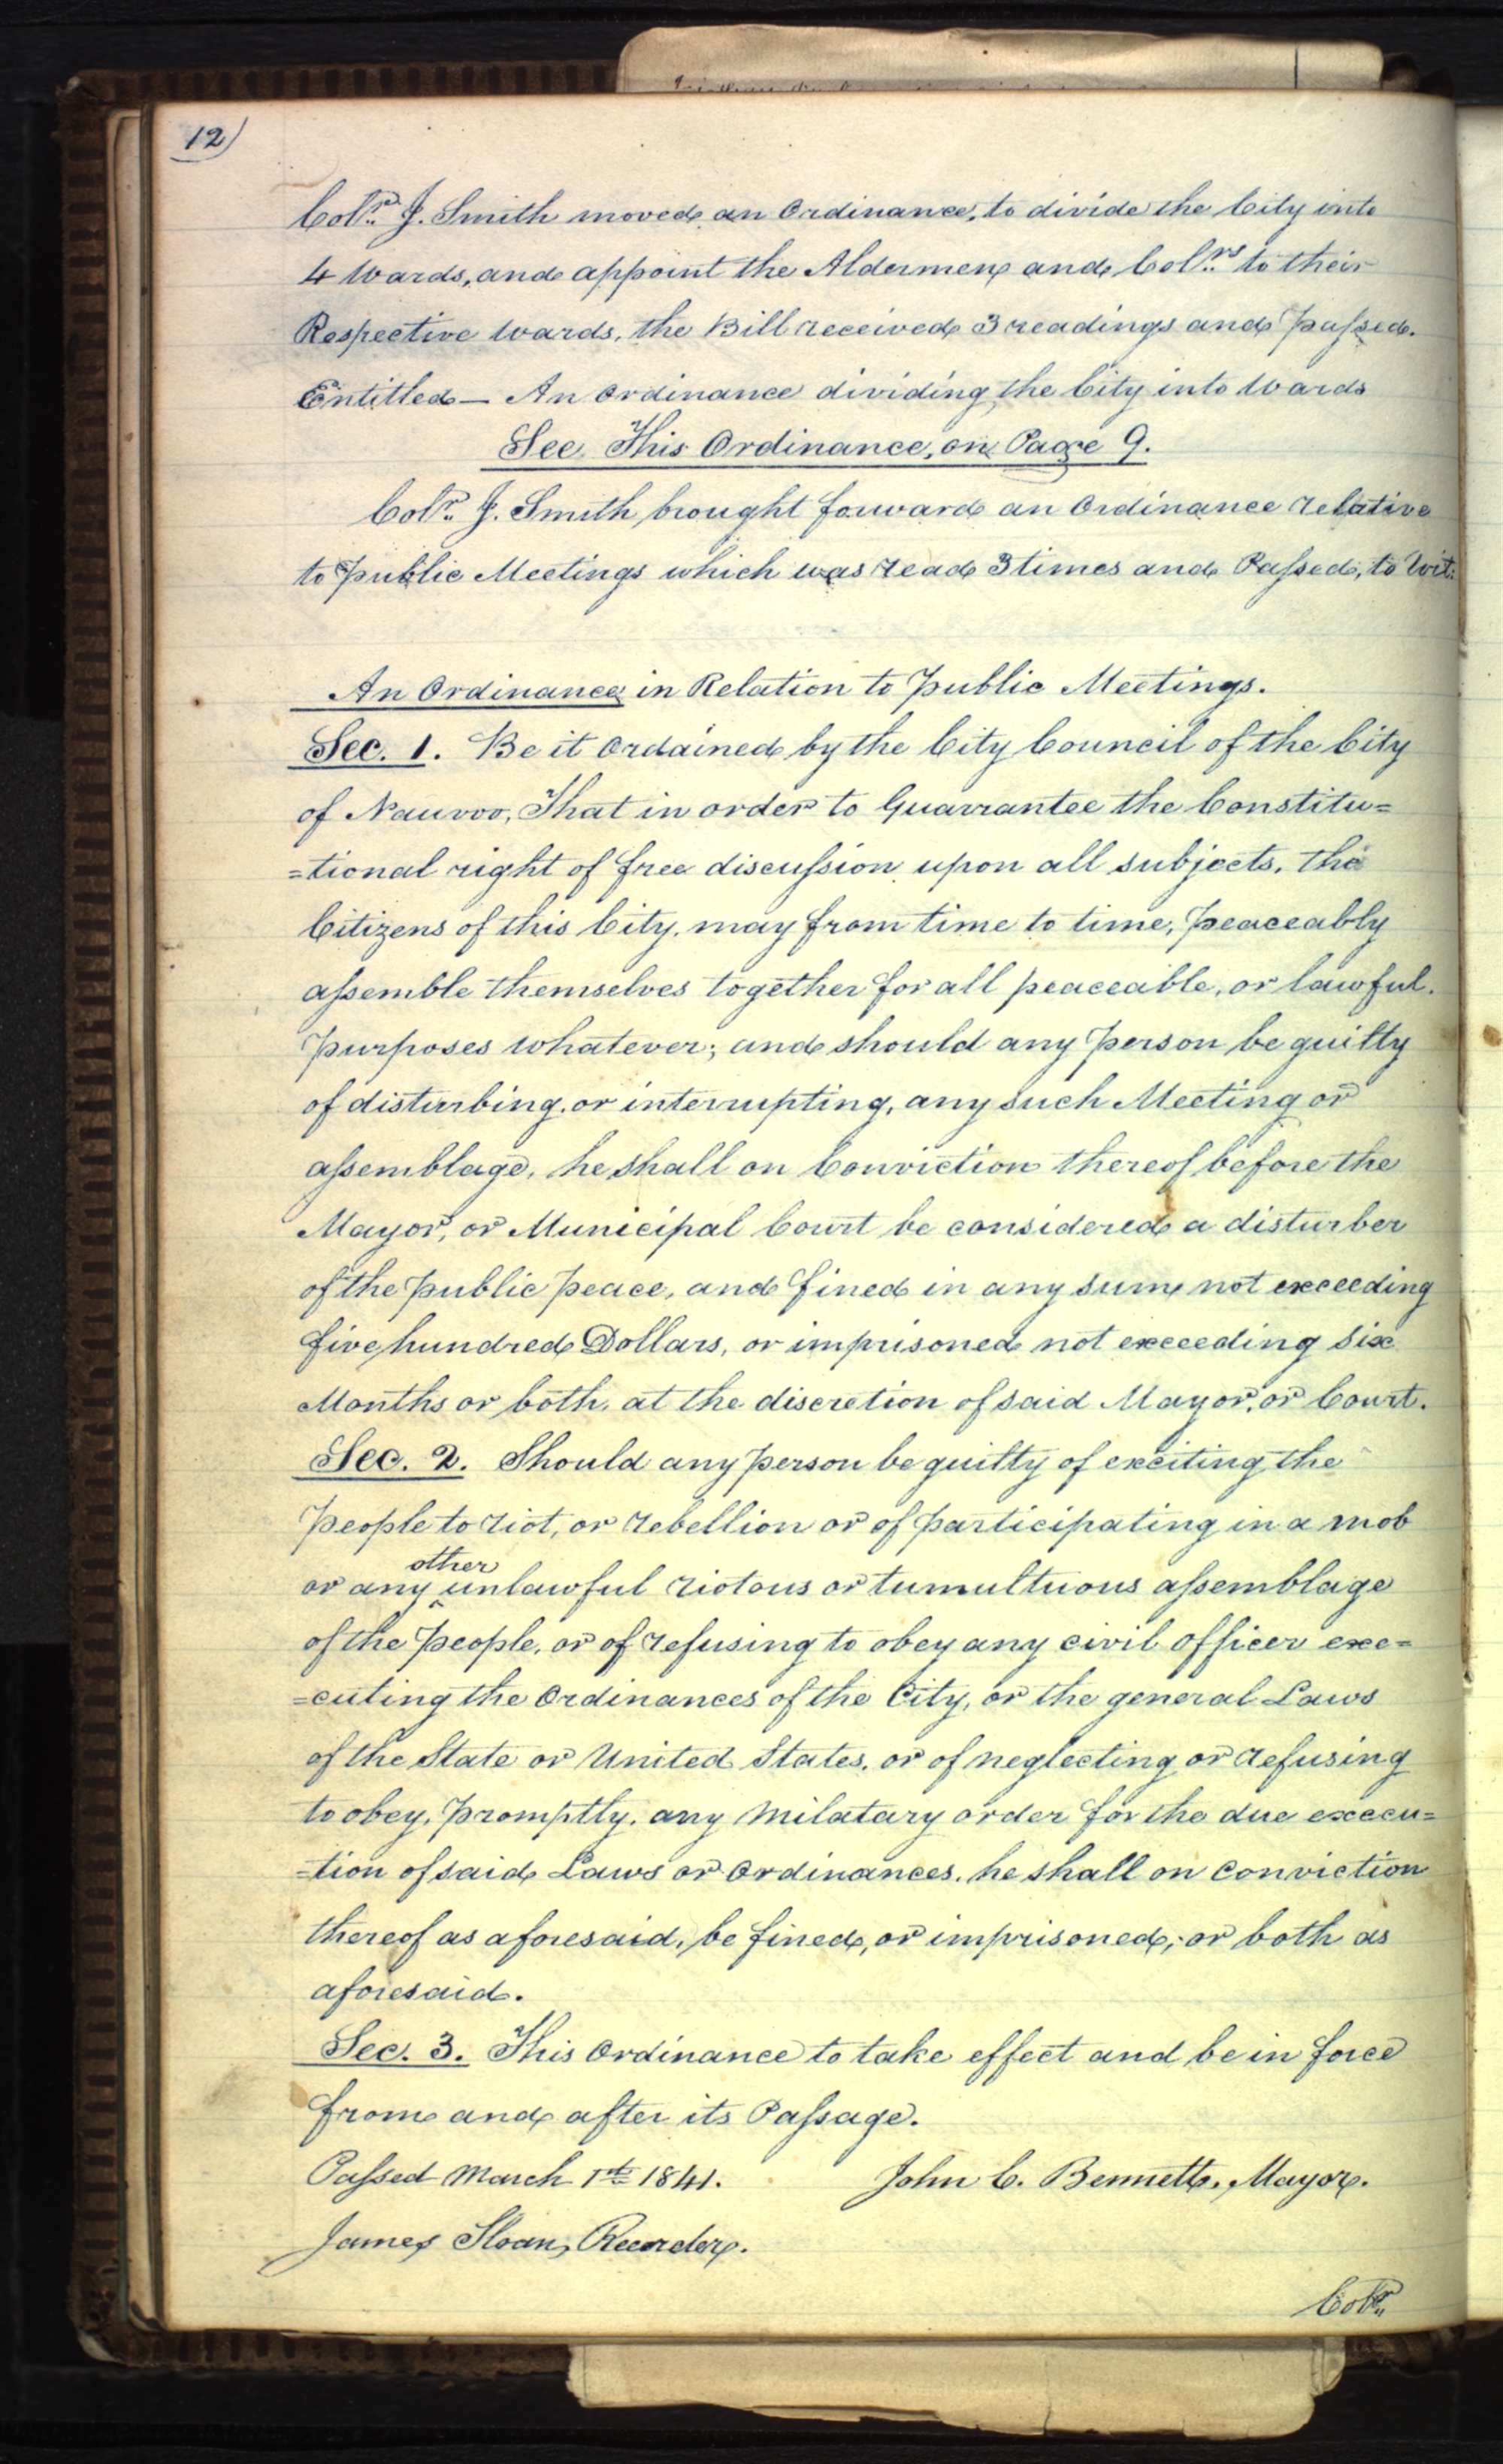 12)
Col.r J. Smith moved an Ordinance, to divide the City into
4 Wards, and appoint the Aldermen and Col.rs to their
Respective Wards, the Bill received 3 readings and Passed.
Entitled — An Ordinance dividing the City into Wards
See This Ordinance, on Page 9.
Col.r J. Smith brought forward an Ordinance relative
to Public Meetings which was read 3 times and Passed, to Wit:
An Ordinance in Relation to Public Meetings.
Sec. 1. Be it Ordained by the City Council of the City
of Nauvoo, That in order to Guarrantee the Constitu=
=tional right of free discussion upon all subjects, the
Citizens of this City, may from time to time, peaceably
assemble themselves together for all peaceable, or lawful.
Purposes whatever; and should any Person be guilty
of disturbing, or interrupting, any such Meeting or
assemblage, he shall on Conviction thereof before the
Mayor, or Municipal Court be considered a disturber
of the public peace, and fined in any sum not exceeding
five hundred Dollars, or imprisoned not exceeding six
Months or both, at the discretion of said Mayor, or Court.
Sec. 2. Should any Person be guilty of exciting the
People to riot, or rebellion or of participating in a mob
or any ^other unlawful riotous or tumultuous assemblage
of the People, or of refusing to obey any civil officer exe=
=cuting the Ordinances of the City, or the general Laws
of the State or United States, or of neglecting or refusing
to obey, promptly, any Milatary order for the due execu=
=tion of said Laws or Ordinances, he shall on conviction
thereof as aforesaid, be fined, or imprisoned, or both as
aforesaid.
Sec. 3. This Ordinance to take effect and be in force
from and after its Passage.
Passed March 1st 1841. John C. Bennett, Mayor.
James Sloan, Recorder.
Col.r